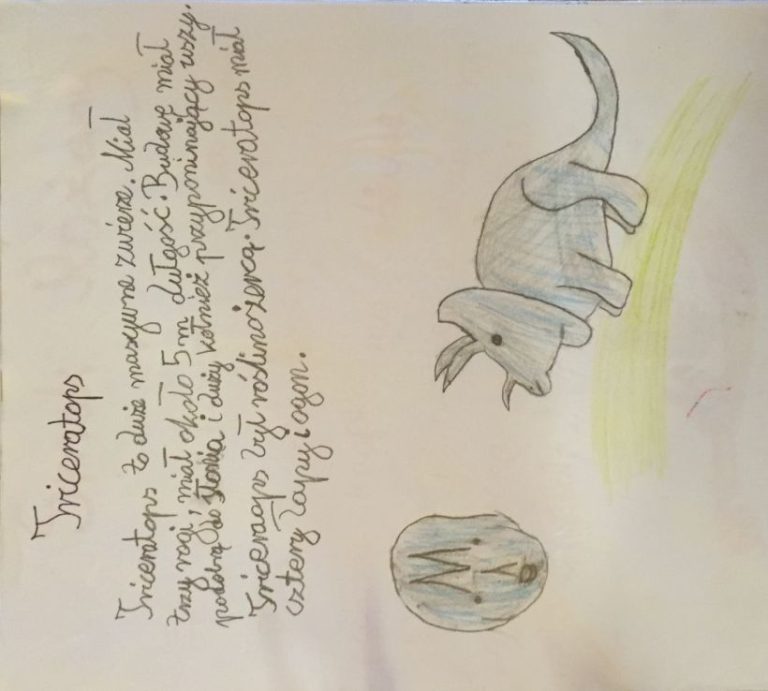 Triceratops
Triceratops to duże masywne zwierze. Miał
trzy rogi, miał około 5 m długość. Budowę miał
podobną do słonia i duży kołnież przyponinający uszy.
Triceraops był roślinożercą. Triceratops miał
cztery łapy i ogon.